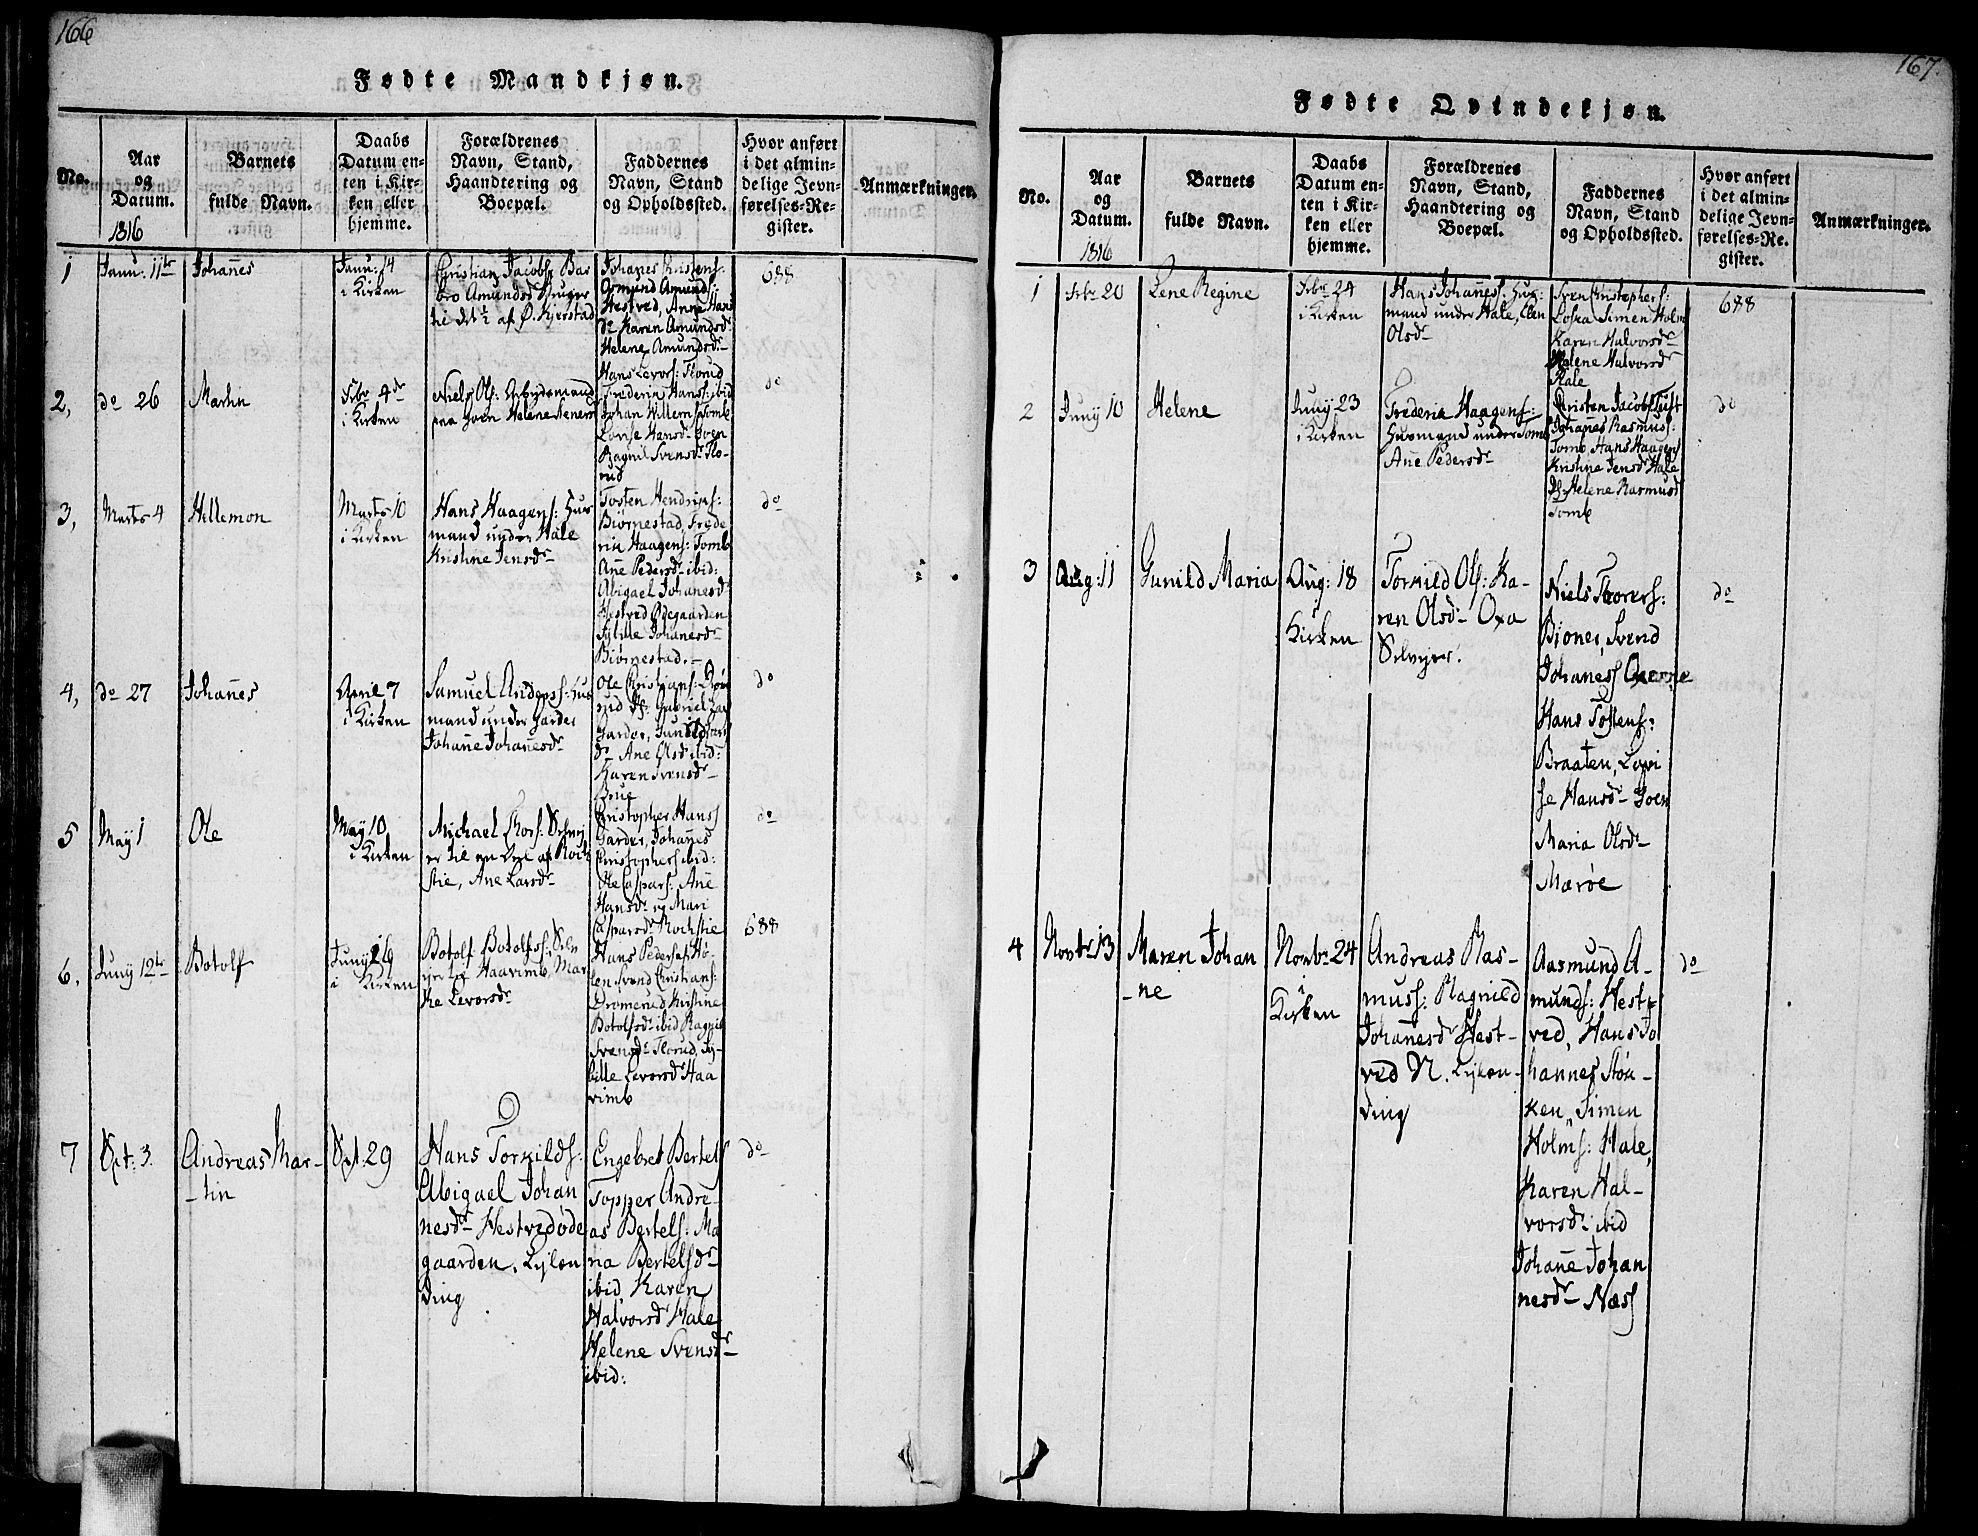 166
Fødte Mandkjøn.
No.
Aar
og
Datum.
1816
Barnets
fulde Navn.
Daabs
Datum en-
ten i Kir-
ken eller
hjemme.
Forældrenes
Navn, Stand,
Haandtering og
Boepæl.
Faddernes
Navn, Stand
og Opholdssted.
Hvor anført
i det almin-
delige Jevn-
førelses-Re-
gister.
Anmærkninger.
1
Janu: 11te
Johañes
Janu: 14
i Kirken
Christian Jacobs:
Amundsd Bruger
til af Ø. Kjerstad
Johañes Kristens:
Asmund Amunds:
Hestved, Anne Hans
dr Karen Amundsdr
Helene Amundsdr
688
2,
do 26
Martin
Febr 4de
i Kirken
Niels Ols: Arbeidsmand
paa Goen Helene
Hans Levors: Florud
Frederik Hanss: ibid
Johan Willem Tomb
Lovise Hansdr Goen
Ragnil Svensdr Flo-
rud
do
3,
Marts 4
Hellemon
Marts 10
i Kirken
Hans Haagens: Huus
mand under Hale
Kristine Jensdr
Tosten Hendriks:
Biørnestad, Frede
rik Haagens: Tomb
Añe Pedersdr ibid:
Abigael Johanesdr
Hestved Ødegaarden
Sybille Johanesdr
Biørnestad.
do
4,
do 27
Johañes
April 7
i Kirken
Samuel Anderss: Hus
mand under Garder
Johañe Johañesdr
Ole Christians: Drøm
rud Gabriel
Garder, Gunild
dr Ane Olsdr ibid:
Karen Svensdr
Brue
do
5
May 1
Ole
May 10
i Kirken
Michael Thors: Selvej
er til en Deel af Roch
stie, Ane Larsdr
Christopher Hans
Garder, Johañes
Christophers ibid:
Ole Caspars: Añe
Hansdr og Mari
Caspersdr Rochstie
do
6,
Juny 12te
Botolf
Juny 16
i Kirken
Botolf Botolfss: Selv
ejer til Haavimb, Mar
the Levorsdr
Hans Peders: Hø-
len Svend Christians:
Dromerud Kirstine
Botolfsdr ibid Ragnil
Svensdr Florud, Sy-
bille Levorsdr Haa
vimb
688
7
Sept: 3.
Andreas Mar-
-tin
Sept. 29
Hans Torkilds:
Abigael Johan
nesdr Hestvedøde
gaarden. Lyløn
ding
Engebret Bertels
Topper Andre-
as Bertels: Ma
ria Bertelsdr
ibid, Karen
Halvorsdr Hale
Helene Svensdr
ibid:
do
167.
Fødte Qvindekjøn.
No.
Aar
og
Datum.
1816
Barnets
fulde Navn.
Daabs
Datum en-
ten i Kir-
ken eller
hjemme.
Forældrenes
Navn, Stand,
Haandtering og
Boepæl.
Faddernes
Navn, Stand
og Opholdssted.
Hvor anført
i det almin-
delige Jevn-
førelses-Re-
gister.
Anmærkninger.
1
Febr 20
Lene Regine
Febr 24
i Kirken
Hans Johañess: Huus:
mand under Hale, Elen
Olsdr
Sven Christophers:
Simen Holms
Karen Halvorsdr
Helene Halvorsdr
Hale
688
2
Juny 10
Helene
Juny 23
i Kirken
Frederik Haagens:
Husmand under Tomb
Añe Pedersdr
Christen Jacobs: Tuft
Johañes Rasmuss:
Tomb Hans Haagens
Kristine Jensdr Hale
Helene Rasmusd
Tomb
do
3
Aug: 11
Gunild Maria
Aug: 18
Kirken
Torkild Ols: Ka-
ren Olsdr Oxa
Selvejer.
Niels Thorers:
Bioner, Svend
Johaness
Hans Tostens:
Braaten, Lovi
se Hansdr Goen
Maria Olsdr
Mærøe
do
4
Novbr 13
Maren Johan
-ne
Novbr 24
i
Kirken
Andreas Ras-
muss: Ragnild
Johañesdr Hest-
ved N. Lyløn-
ding
Aasmund A-
munds: Hest-
ved, Hans Jo
hannes Støn-
ken, Simen
Holms: Hale,
Karen Hal-
vorsdr ibid
Johañe Johan
nesdr Næss
do